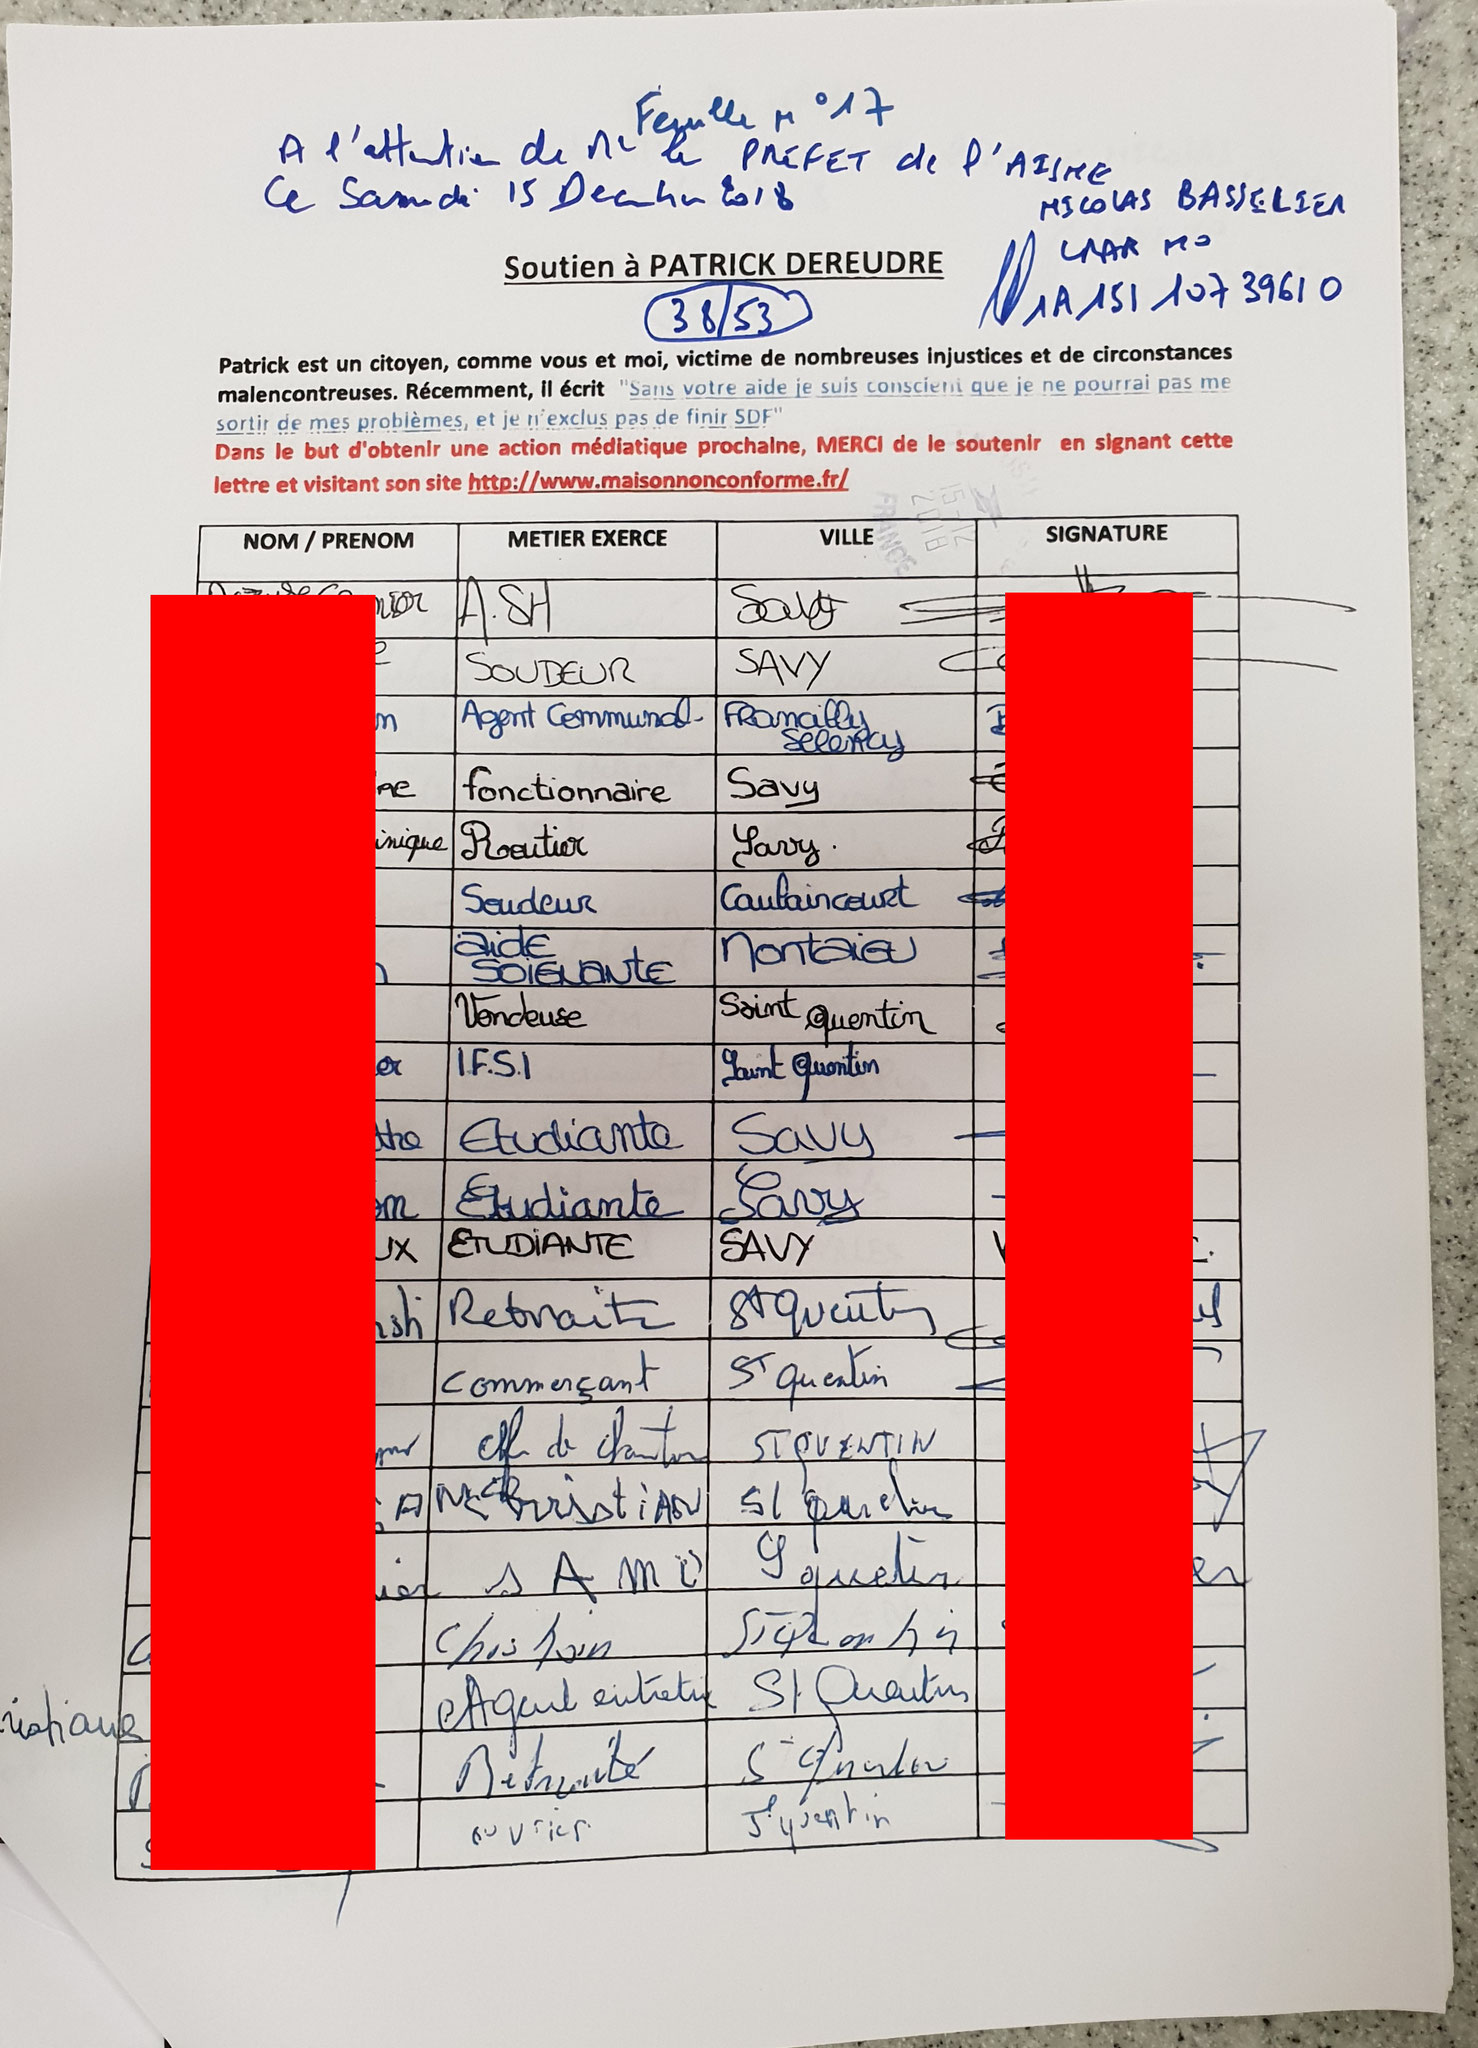 Feuille N°17
A l'attention de Mr le PREFET de l'AISNE
Ce Samedi 15 Décembre 2018
NICOLAS BASSELIER
LRAR N°
1A 151 107 3961 0
Soutien à PATRICK DEREUDRE
38/53
Patrick est un citoyen, comme vous et moi, victime de nombreuses injustices et de circonstances
malencontreuses. Récemment, il écrit "Sans votre aide je suis conscient que je ne pourrai pas me
sortir de mes problèmes, et je n'exclus pas de finir SDF"
Dans le but d'obtenir une action médiatique prochaine, MERCI de le soutenir en signant cette
lettre et visitant son site http://www.maisonnonconforme.fr/
15-12
2018
FRANCE
NOM / PRENOM METIER EXERCE VILLE SIGNATURE
A.SH Savy
SOUDEUR SAVY
Agent Communal Francilly
Selency
fonctionnaire Savy
inique Routier Savy.
Soudeur Caulaincourt
aide
SOIGNANTE Montaieu
Vendeuse Saint quentin
er I.F.S.I Saint Quentin
the Etudiante Savy
Etudiante Savy
UX ETUDIANTE SAVY
Retraite St Quentin
commerçant St quentin
ST QUENTIN
CHRISTIAN St quentin
ier S A M U St quentin
St Quentin
Agent entretien St Quentin
Retraité St Quentin
ouvrier St quentin